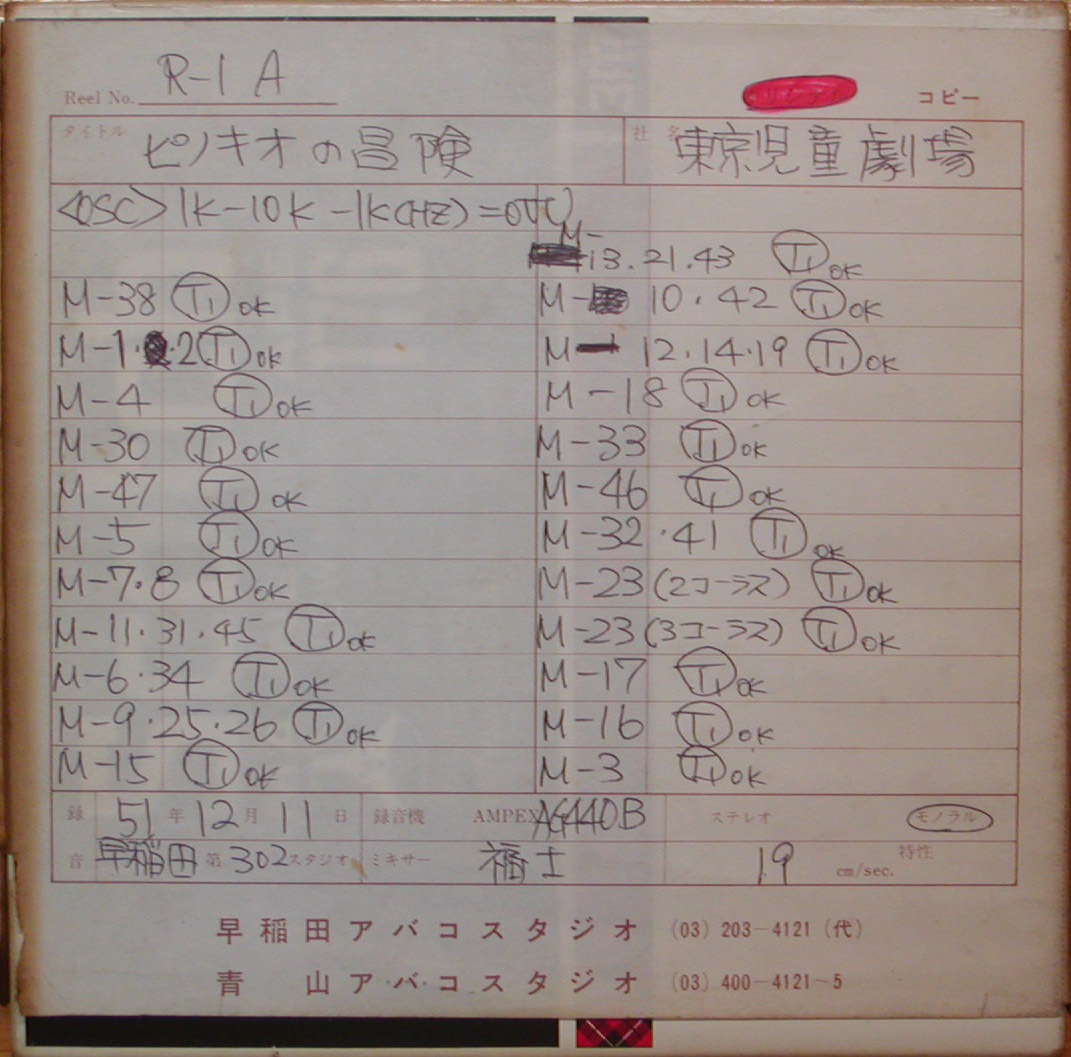 Reel No. R-1 A
コピー
タイトル ピノキオの冒険
社名 東京児童劇場
<OSC> 1K-10K-1K(HZ)=0VU
M-13.21.43 T1 OK
M-38 T1 OK
M-10.42 T1 OK
M-1.2 T1 OK
M-12.14.19 T1 OK
M-4 T1 OK
M-18 T1 OK
M-30 T1 OK
M-33 T1 OK
M-47 T1 OK
M-46 T1 OK
M-5 T1 OK
M-32.41 T1 OK
M-7.8 T1 OK
M-23(2コーラス) T1 OK
M-11.31.45 T1 OK
M-23(3コーラス) T1 OK
M-6.34 T1 OK
M-17 T1 OK
M-9.25.26 T1 OK
M-16 T1 OK
M-15 T1 OK
M-3 T1 OK
録 51年12月11日 録音機 AMPEX AG440B ステレオ モノラル
音 早稲田 第302スタジオ ミキサー 福士 19 cm/sec. 特性
早稲田アバコスタジオ (03) 203-4121 (代)
青山アバコスタジオ (03) 400-4121~5